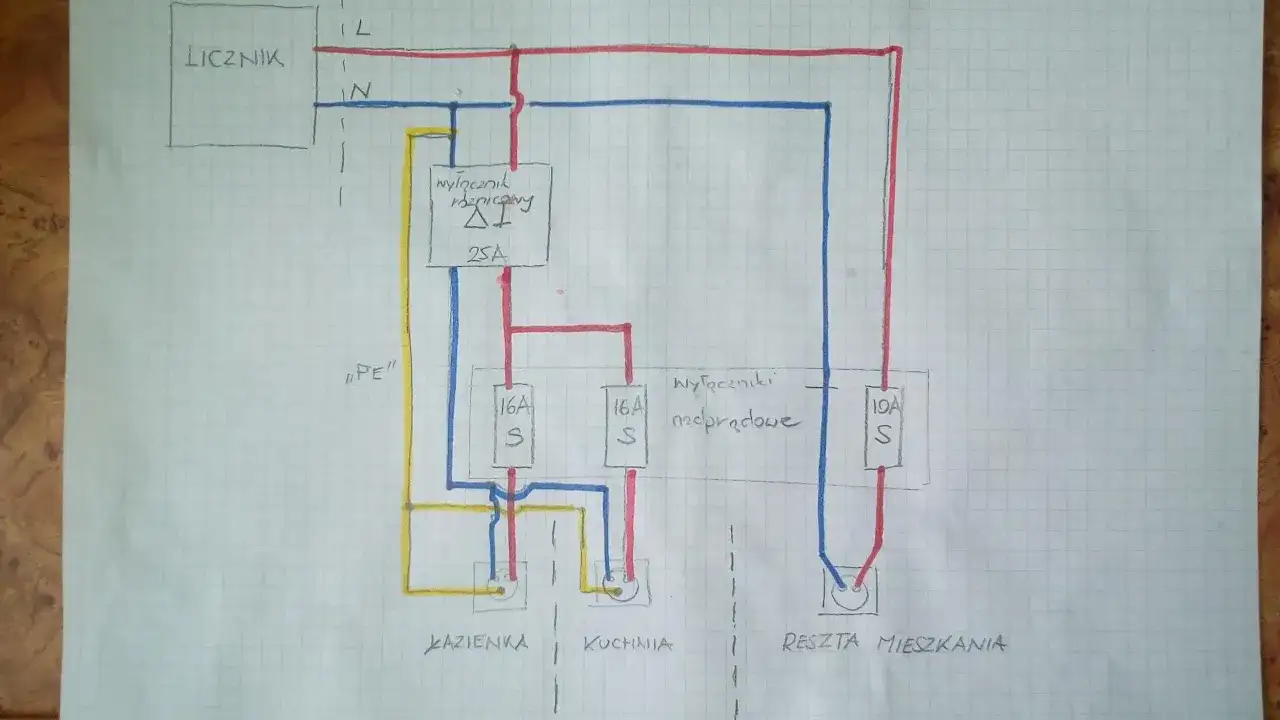 L
LICZNIK
N
wyłącznik
różnicowy
ΔI
25A
„PE”
16A
S
16A
S
wyłączniki
nadprądowe
10A
S
ŁAZIENKA
KUCHNIA
RESZTA MIESZKANIA